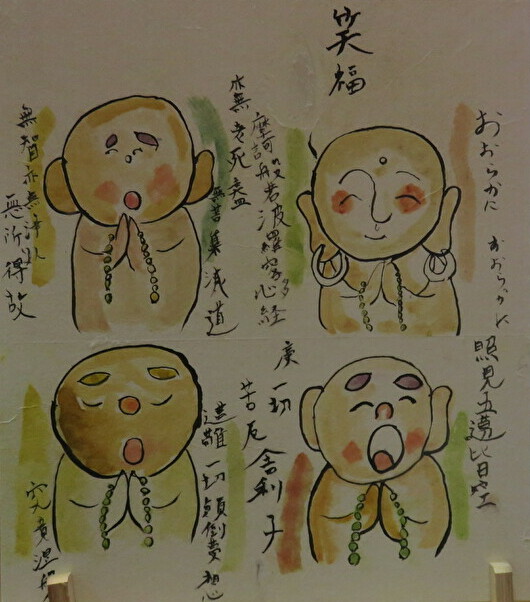 笑福
おおらかに
おおらかに
摩訶般若波羅蜜多心経
亦無老死盡
無苦集滅道
無智亦無得以
無所得故
照見五蘊皆空
度一切
苦厄舎利子
遠離一切顛倒夢想
究竟涅槃